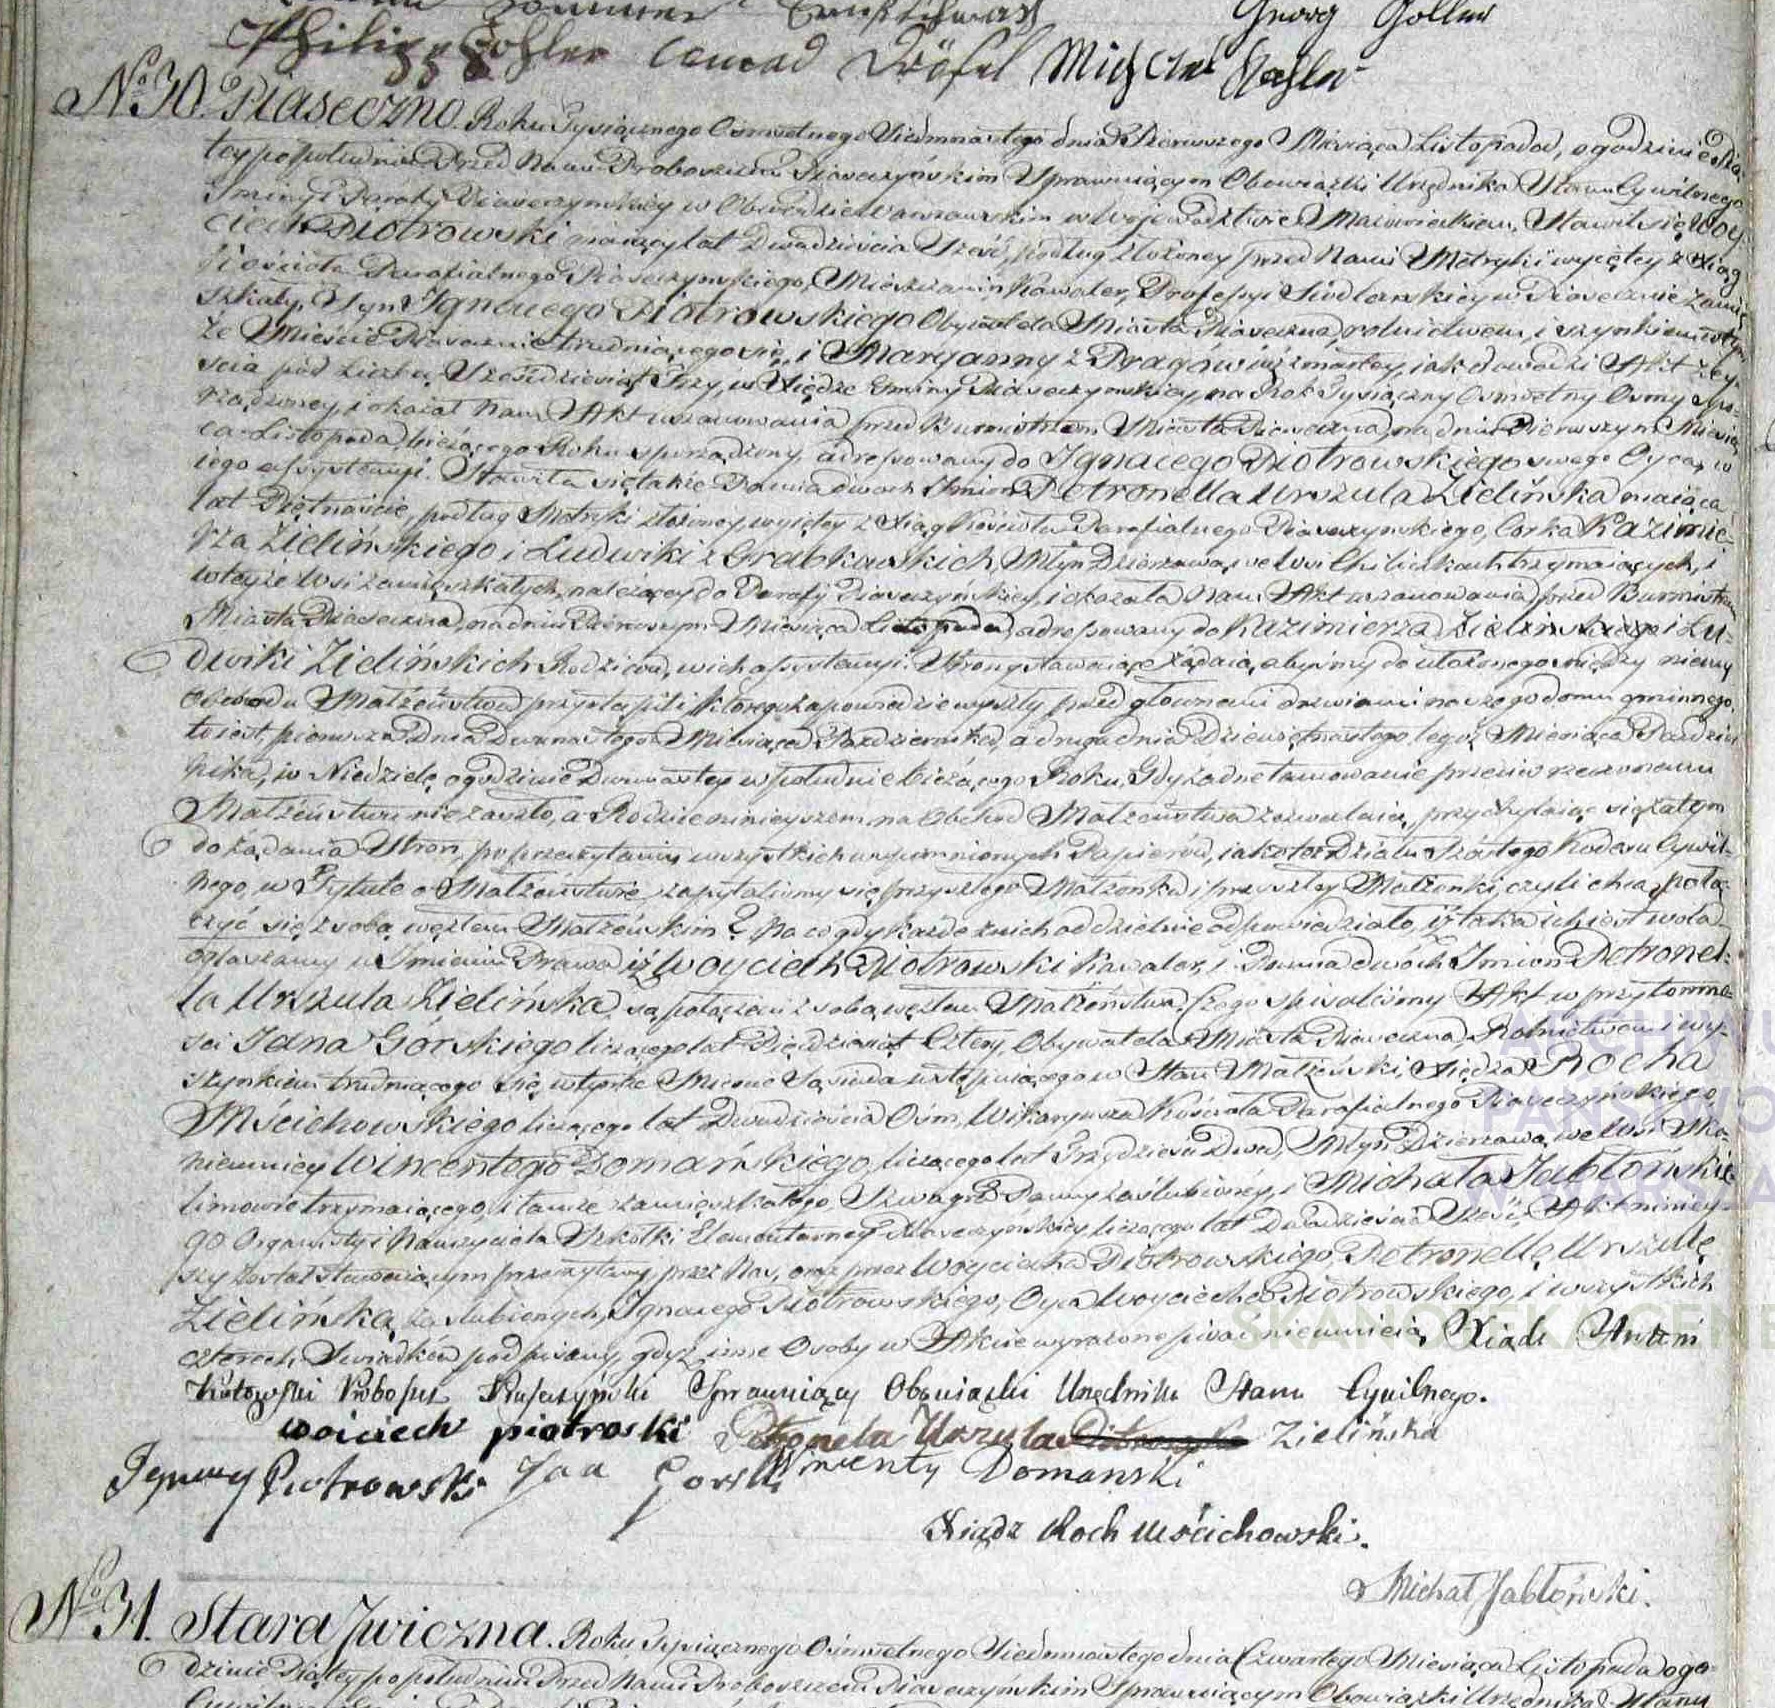 Georg Goller
Philipp Kohler Conrad Dröfel Michael Kahler
No 30. Piaseczno. Roku Tysiącznego Osmsetnego Siedmnastego dnia Pierwszego Miesiąca Listopada, o godzinie Pią-
tey po południu Przed Nami Proboszczem Piaseczyńskim Sprawuiącym Obowiązki Urzędnika Stanu Cywilnego
Gminy i Parafij Piaseczynskiey w Obwodzie Warszawskim w Woiewodztwie Mazowieckiem, Stawił się Woy-
ciech Piotrowski maiący lat Dwadzieścia Sześć, podług złożoney przed Nami Metryki wyiętey z Xiąg
Kościoła Parafialnego Piaseczynskiego, Mieszczanin Kawaler, Professyi Siodlarskiey w Piasecznie zamie-
szkały, Syn Ignacego Piotrowskiego Obywatela Miasta Piaseczna, rolnictwem, i szynkiem w tym
że Mieście Piasecznie trudniącego się, i Maryanny z Dragowiczow zmarłey, iak dowodzi Akt Zey-
ścia pod Liczbą Sześćdziesiąt Trzy, w Xiędze Gminy Piaseczynskiey na Rok Tysiączny Osmsetny Osmy spo-
rządzoney, i okazał Nam Akt uszanowania przed Burmistrzem Miasta Piaseczna, na dniu Pierwszym Miesią-
ca Listopada, bieżącego Roku sporządzony, adressowany do Ignacego Piotrowskiego swego Oyca, w
iego assystencyi. Stawiła się także Panna dwoch Imion Petronella Urszula Zielińska maiąca
lat Piętnaście, podług Metryki złożoney, wyiętey z Xiąg Kościoła Parafialnego Piaseczynskiego, Corka Kazimie-
rza Zielińskiego i Ludwiki z Grabkowskich, Młyn Dzierzawą we Wsi Chiliczkach trzymaiących, i
w teyże Wsi zamieszkałych, należącey do Parafij Piaseczynskiey, i okazała Nam Akt uszanowania przed Burmistrzem
Miasta Piaseczna, na dniu Pierwszym Miesiąca Listopada, adressowany do Kazimierza Zielinskiego i Lu-
dwiki Zielińskich Rodziców, w ich assystencyi. Strony stawaiące żądaią, abyśmy do ułożonego między niemi
Obchodu Małżeństwa przystąpili, którego zapowiedzie wyszły przed głownemi drzwiami naszego domu gminnego,
to iest, pierwsza Dnia Dwunastego Miesiąca Pazdziernika, a druga dnia Dziewiętnastego tegoż Miesiąca Pazdzier
nika, w Niedzielę o godzinie Dwunastey w południe bieżącego Roku. Gdy żadne tamowanie przeciw rzeczonemu
Małżeństwu nie zaszło, a Rodzice ninieyszem na Obchod Małżeństwa zezwalaią, przychylaiąc się zatym
do żądania Stron, po przeczytaniu wszystkich wspomnionych Papierów, iako też Działu Szóstego Kodexu Cywil-
nego, w Tytule o Małżeństwie, zapytaliśmy się przyszłego Małżonka i przyszłey Małżonki, czyli chcą połą-
czyć się z sobą węzłem Małżeńskim? Na co gdy każde z nich oddzielnie odpowiedziało, iż taka ich iest wola
ogłaszamy w Imieniu Prawa iż Woyciech Piotrowski Kawaler, i Panna dwóch Imion Petronel-
la Urszula Zielińska, są połączeni z sobą węzłem Małżeństwa. Czego spisaliśmy Akt w przytomno-
ści Jana Górskiego liczącego lat Pięćdziesiąt Cztery, Obywatela Miasta Piaseczna, Rolnictwem i wy-
szynkiem trudniącego się, w tymże Mieście Sąsiada wstępuiącego w Stan Małżeński, Xiędza Rocha
Mścichowskiego liczącego lat Dwadzieścia Ośm, Wikaryusza Kościoła Parafialnego Piaseczyńskiego,
niemniey Wincentego Domańskiego, liczącego lat Trzydzieści Dwa, Młyn Dzierzawą, we Wsi Sko-
limowie trzymaiącego, i tamże zamieszkałego, Szwagra Panny zaślubioney, i Michała Jabłońskie-
go Organisty i Nauczyciela Szkółki Elementarney Piaseczynskiey, liczącego lat Dwadzieścia Sześć, Akt niniey-
szy został stawaiącym przeczytany, przez Nas, oraz przez Woyciecha Piotrowskiego, Petronellę Urszulę
Zielińską zaslubionych, Ignacego Piotrowskiego, Oyca Woyciecha Piotrowskiego, i wszystkich
czterech Swiadków podpisany, gdyż inne Osoby w Akcie wyrażone pisac nieumieią, Xiądz Antoni
Kotowski Proboszcz Piaseczyński Sprawuiący Obowiązki Urzędnika Stanu Cywilnego.
woiciech piotroski Petronela Urszula Zielińska
Ignacy Piotrowski Jan Gorski Wincenty Domanski
Xiądz Roch Mścichowski.
Michał Jabłoński.
No 31. Stara Jwiczna. Roku Tysiącznego Ośmsetnego Siedmnastego dnia Czwartego Miesiąca Listopada o go-
dzinie Piątey po południu Przed Nami Proboszczem Piaseczynskim Sprawuiącym Obowiązki Urzędnika Stanu
ARCHIWU
PAŃSTWO
W WARSZA
SKANOTEKA GENE